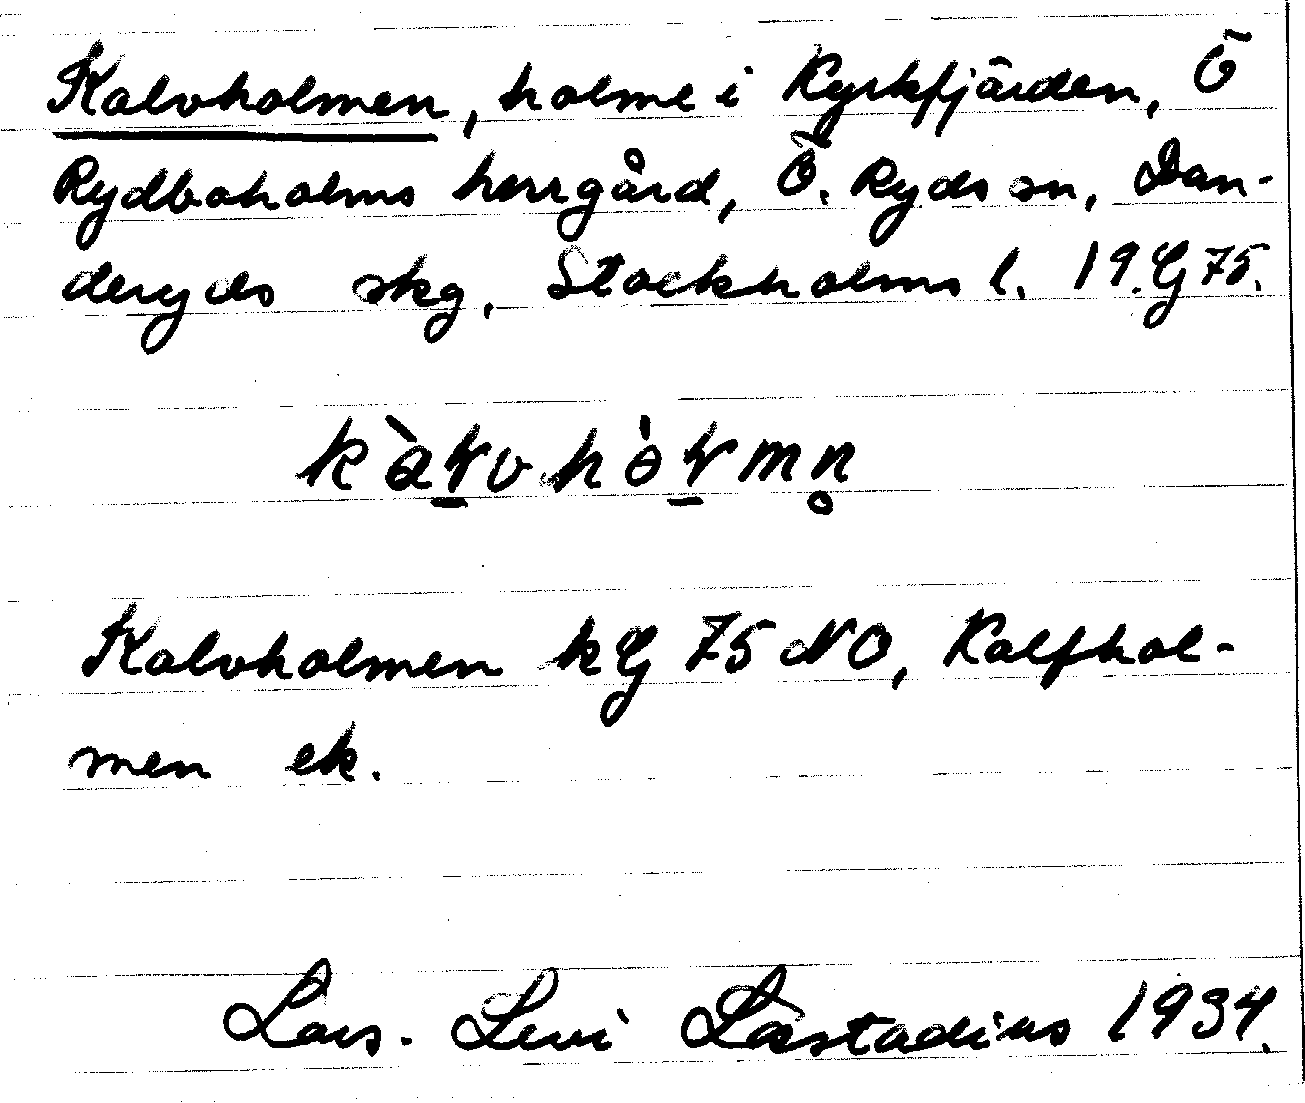 Kalvholmen, holme i Kyrkfjärden, Ö
Rydboholms herrgård, Ö. Ryds sn, Dan-
deryds skg, Stockholms l. 19. G 75.
Kalvholmen kG 75 NO, Kalfhol-
men ek.
Lars-Levi Læstadius 1934.